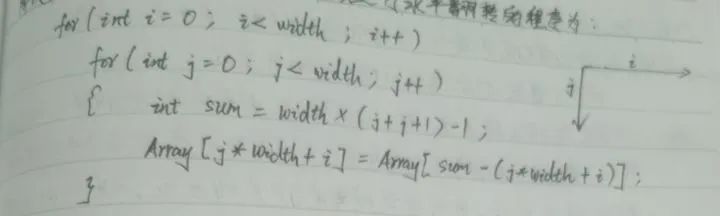 (水平翻转的程序为:
for(int i=0; i<width ; i++)
for(int j=0; j<width; j++)
i
j
{ int sum = width×(j+j+1)-1;
Array[j*width+i] = Array[sum-(j*width+i)];
}